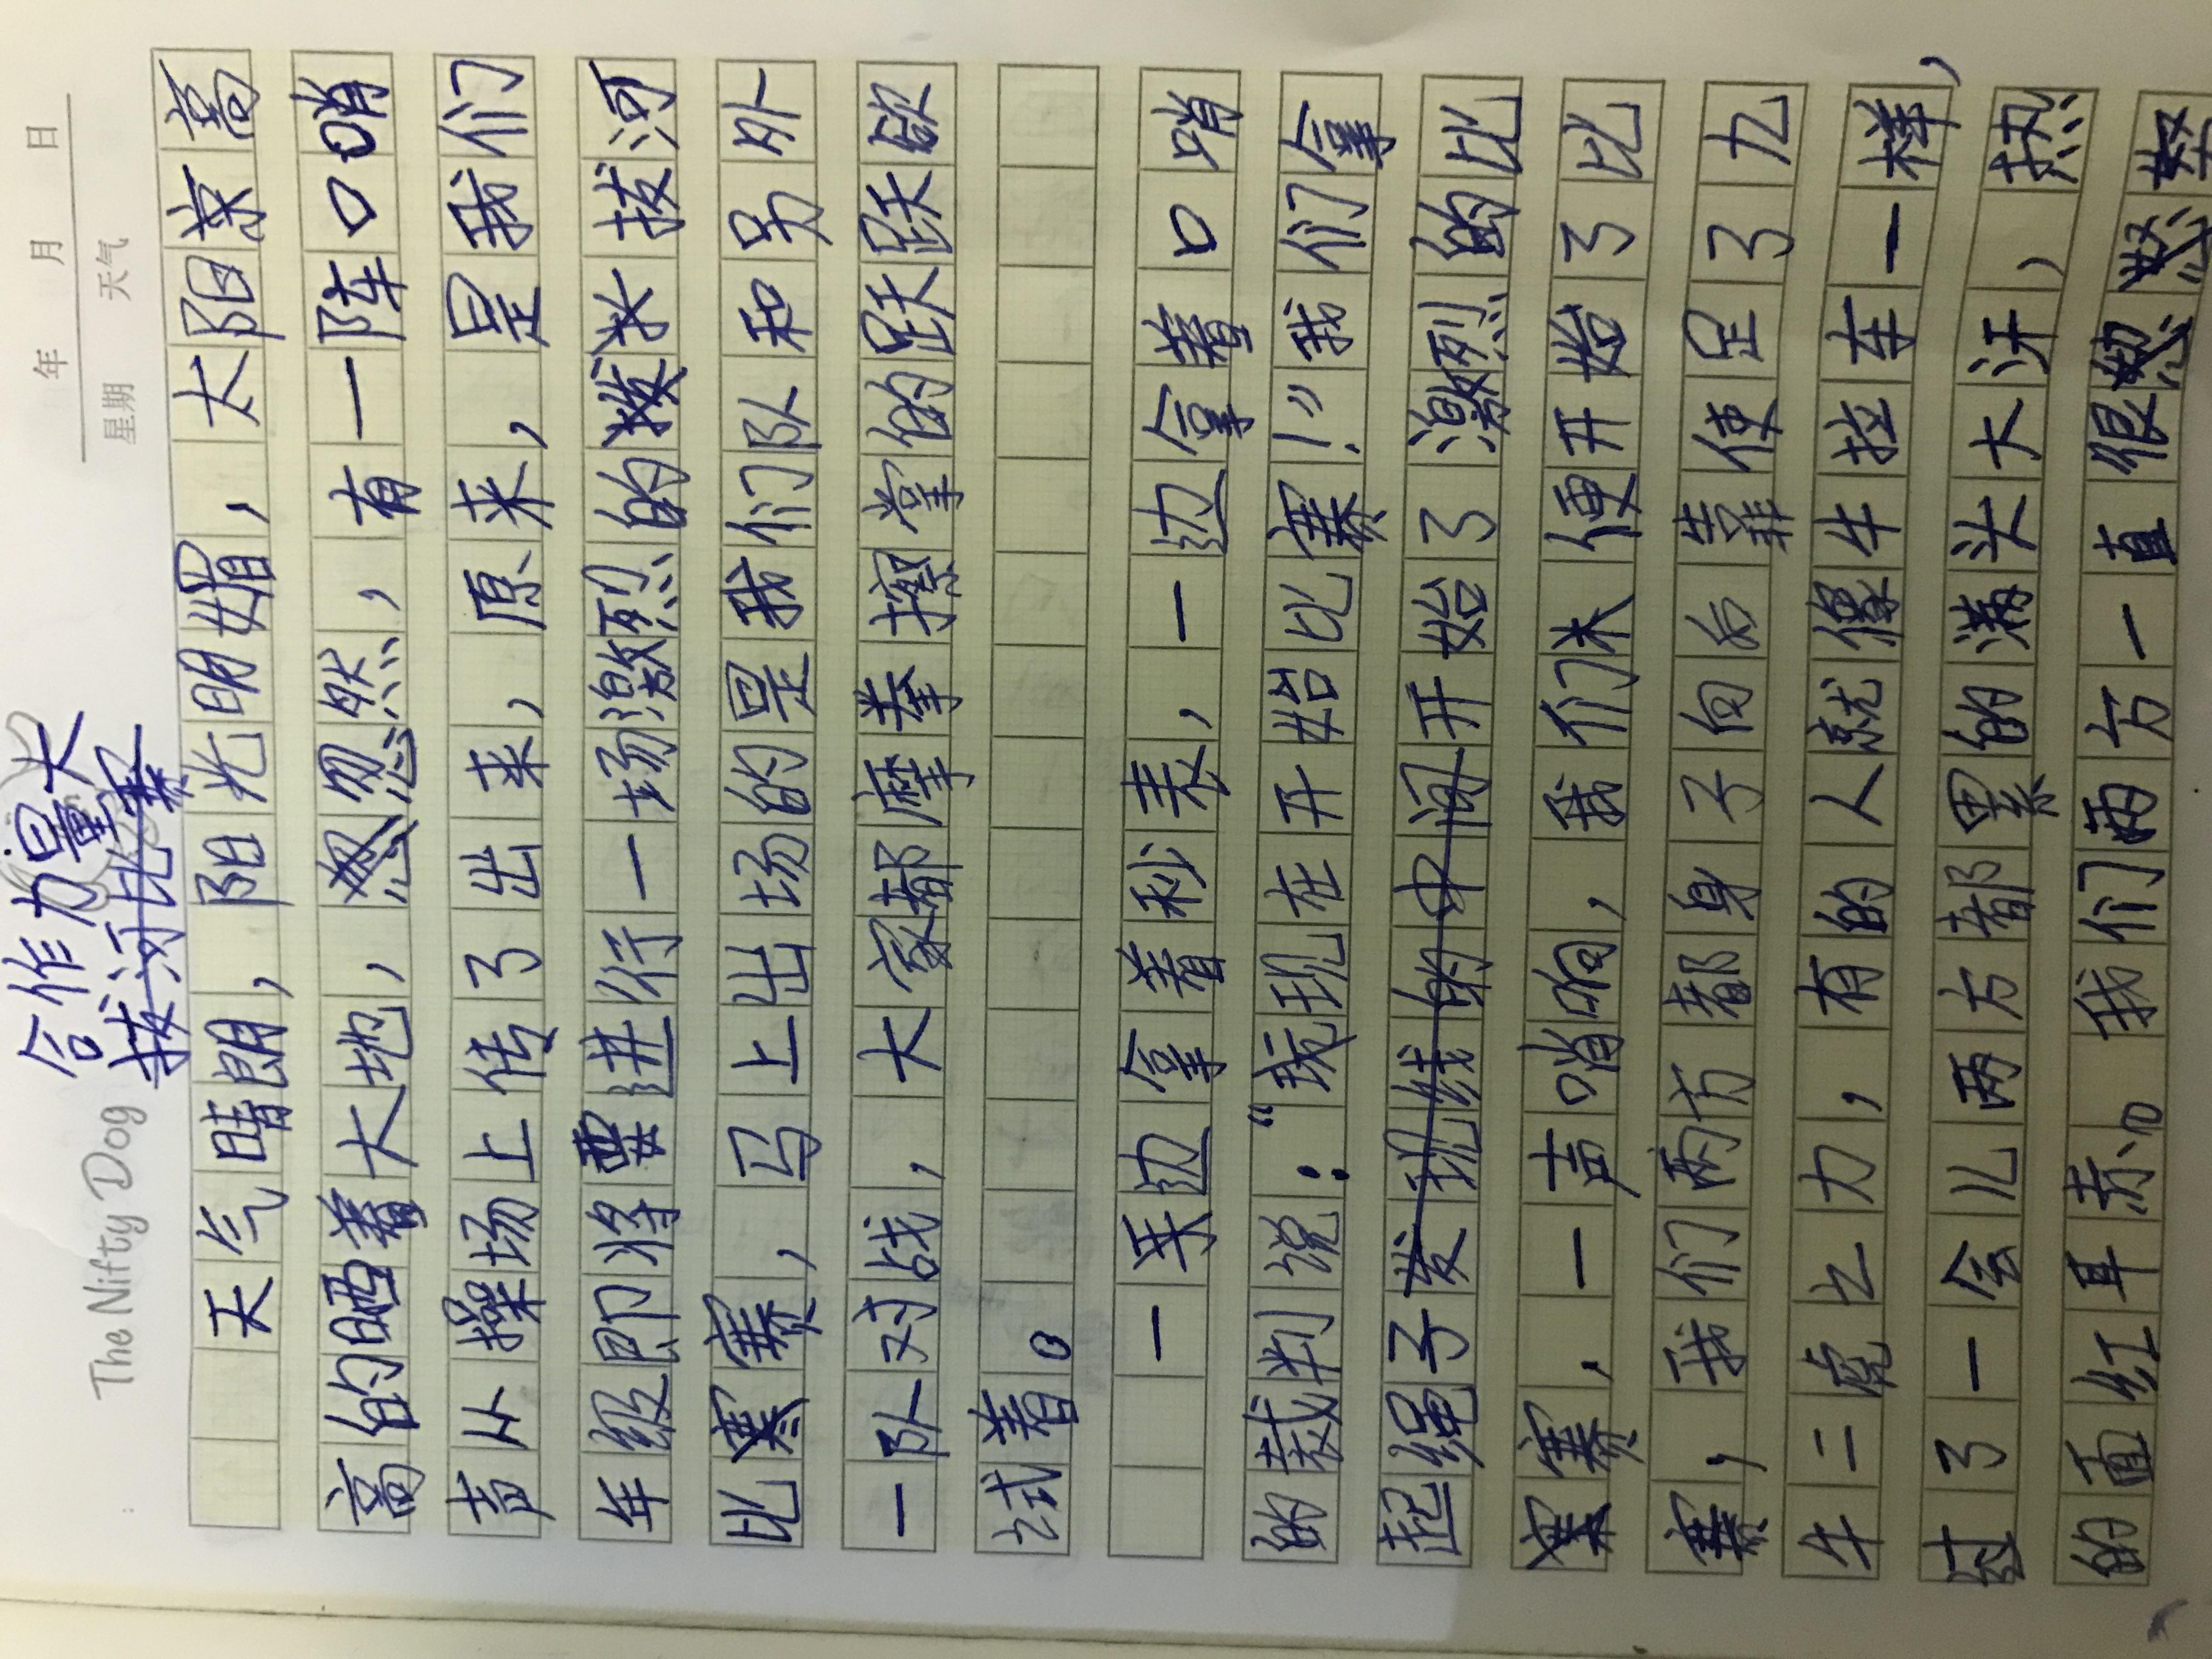 年 月 日
星期 天气
合作力量大
The Nifty Dog
拔河比赛
天气晴朗，阳光明媚，太阳京高
高的晒着大地，忽然，有一阵口哨
声从操场上传了出来，原来，是我们
年级即将要进行一场激烈的拔河
比赛，马上出场的是我们队和另外
一队对战，大家都摩拳擦掌的跃跃欲
试着。
一手边拿着秒表，一边拿着口哨
的裁判说：“现在开始比赛！”我们拿
起绳子发现线的中间开始了激烈的比
赛，一声哨响，我们便开始了比
赛，我们两方都身子向后靠使足了九
牛二虎之力，有的人就像牛拉车一样，
过了一会儿两方都累的满头大汗，热
的面红耳赤。我们两方一直很